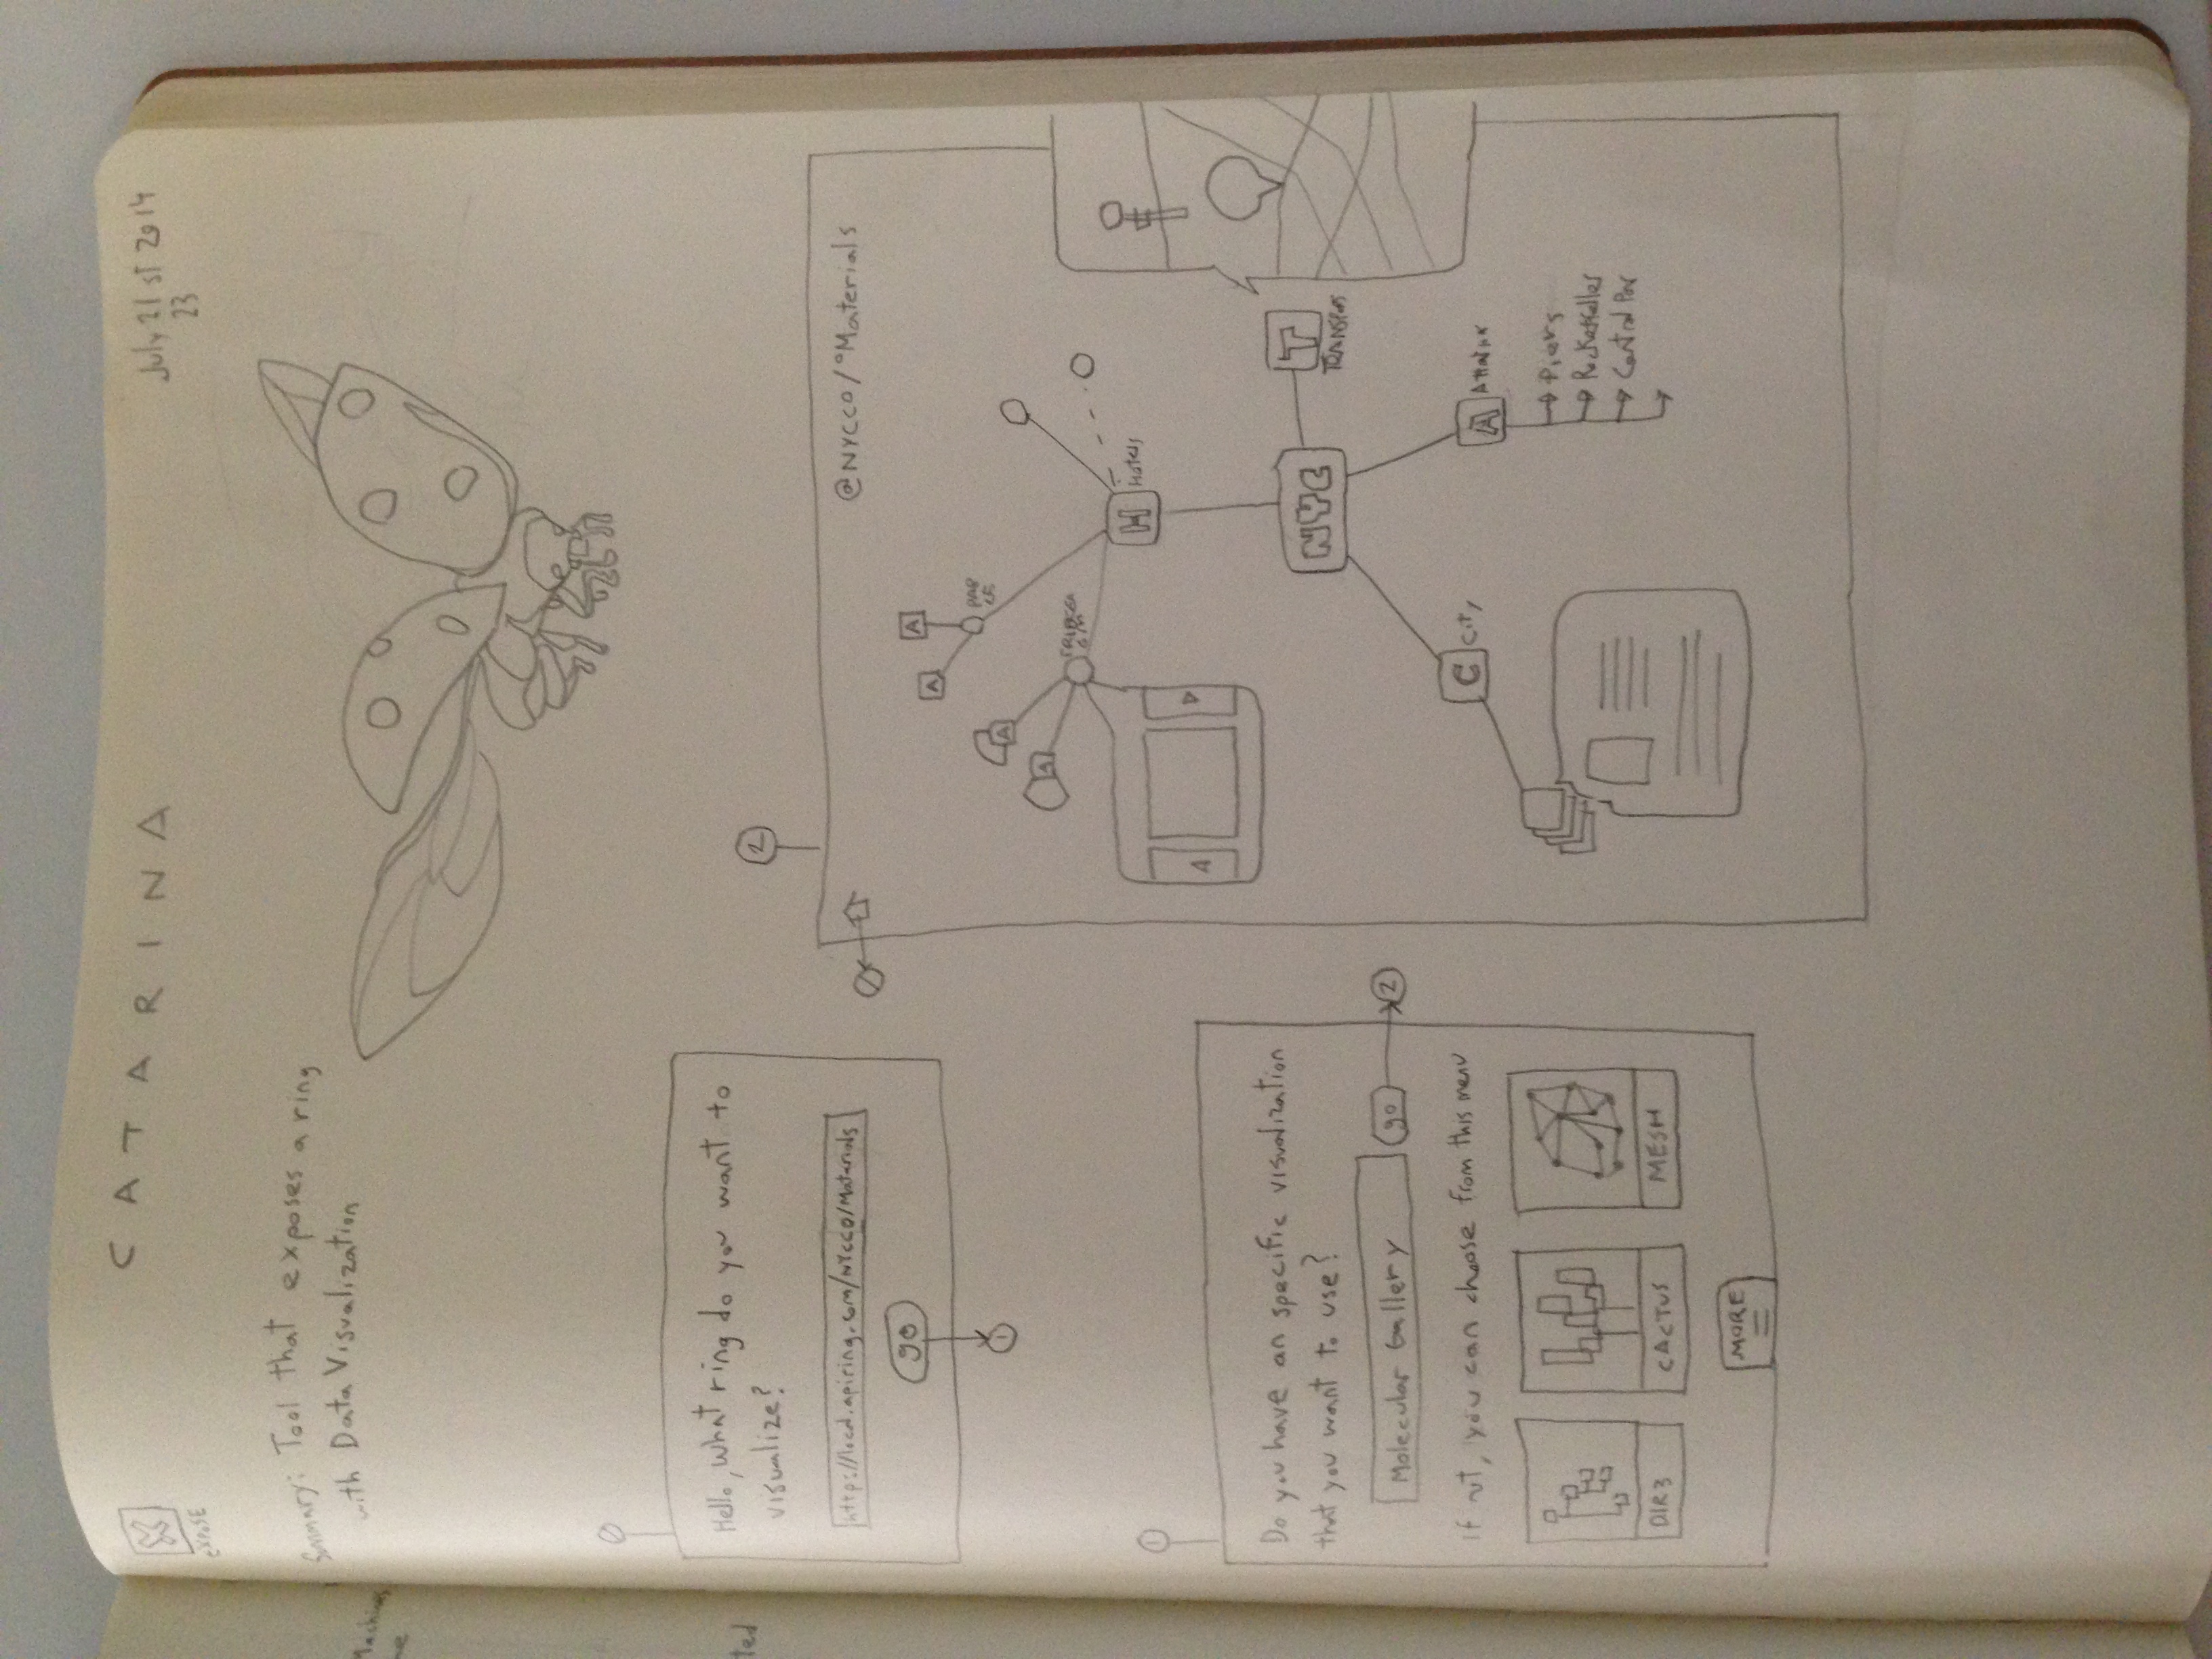 CATARINA
July 21 st 2014
23
EXPOSE
Summary: Tool that exposes a ring
with Data Visualization
Ø
Hello, What ring do you want to
visualize?
http://local.apiring.com/NYCCO/Materials
go
1
1
Do you have an specific visualization
that you want to use?
Molecular Gallery
go
2
If not, you can choose from this menu
DIR3
CACTUS
MESH
MORE
2
Ø
@NYCCO/°Materials
A
A
A
A
H
Hotels
NYC
T
TRANSPORT
C
City
A
Piers
Rockefeller
Central Par
Machines
me
ted